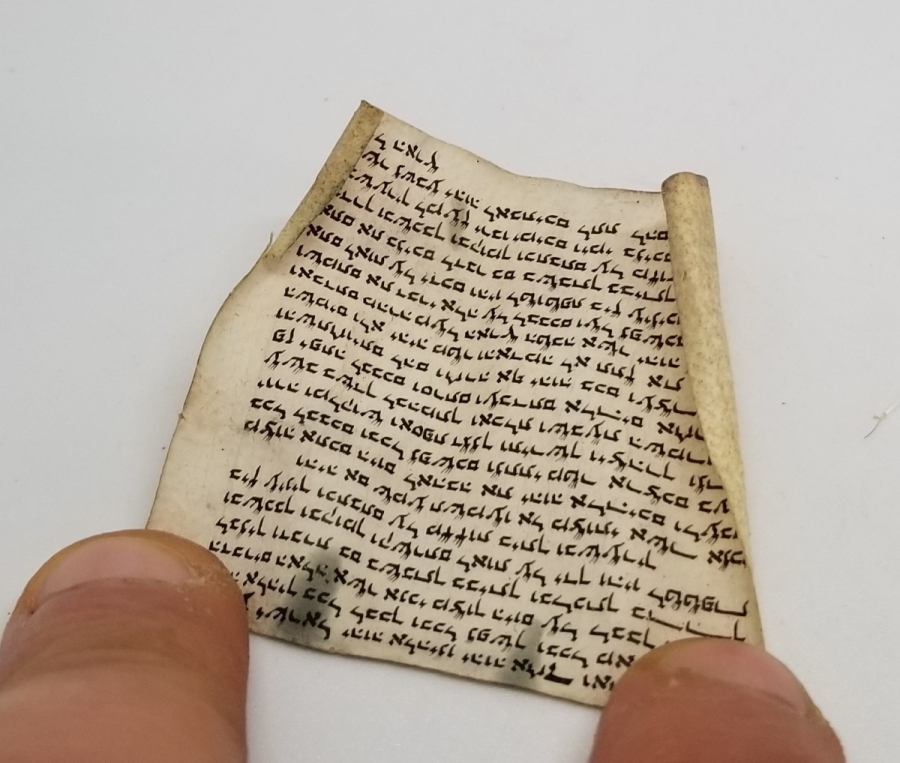 ישראל יהוה אלהינו יהוה אחד
אלהיך בכל לבבך ובכל נפשך ובכל
הדברים האלה אשר אנכי מצוך היום על לבבך
לבניך ודברת בם בשבתך בביתך ובלכתך בדרך
ובשכבך ובקומך וקשרתם לאות על ידך והיו לטטפת
בין עיניך וכתבתם על מזזות ביתך ובשעריך
והיה אם שמע תשמעו אל מצותי אשר אנכי
מצוה אתכם היום לאהבה את יהוה אלהיכם ולעבדו
בכל לבבכם ובכל נפשכם ונתתי מטר ארצכם בעתו
יורה ומלקוש ואספת דגנך ותירשך ויצהרך ונתתי
עשב בשדך לבהמתך ואכלת ושבעת השמרו לכם
פן יפתה לבבכם וסרתם ועבדתם אלהים אחרים
והשתחויתם להם וחרה אף יהוה בכם ועצר את
השמים ולא יהיה מטר והאדמה לא תתן את
ואבדתם מהרה מעל הארץ הטבה אשר יהוה
ושמתם את דברי אלה על לבבכם ועל נפשכם
אתם לאות על ידכם והיו לטוטפת בין עיניכם
אתם את בניכם לדבר בם בשבתך בביתך
ובשכבך ובקומך וכתבתם על מזוזות
ובשעריך למען ירבו ימיכם וימי בניכם
אשר נשבע יהוה לאבתיכם לתת להם
על הארץ